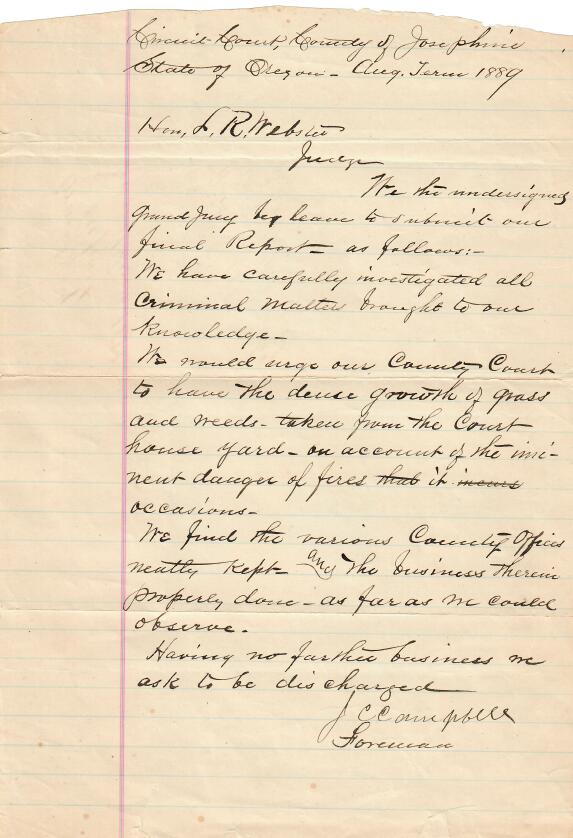 Circuit Court, County of Josephine
State of Oregon - Aug. Term 1889
Hon, L. R. Webster
Judge
We the undersigned
Grand Jury beg leave to submit our
final Report - as follows:-
We have carefully investigated all
Criminal matters brought to our
knowledge -
We would urge our County Court
to have the dense growth of grass
and weeds - taken from the Court
house yard - on account of the imi-
nent danger of fires that it incurs
occasions -
We find the various County Offices
neatly kept - and the business therein
properly done - as far as we could
observe.
Having no further business we
ask to be discharged
J C Campbell
Foreman